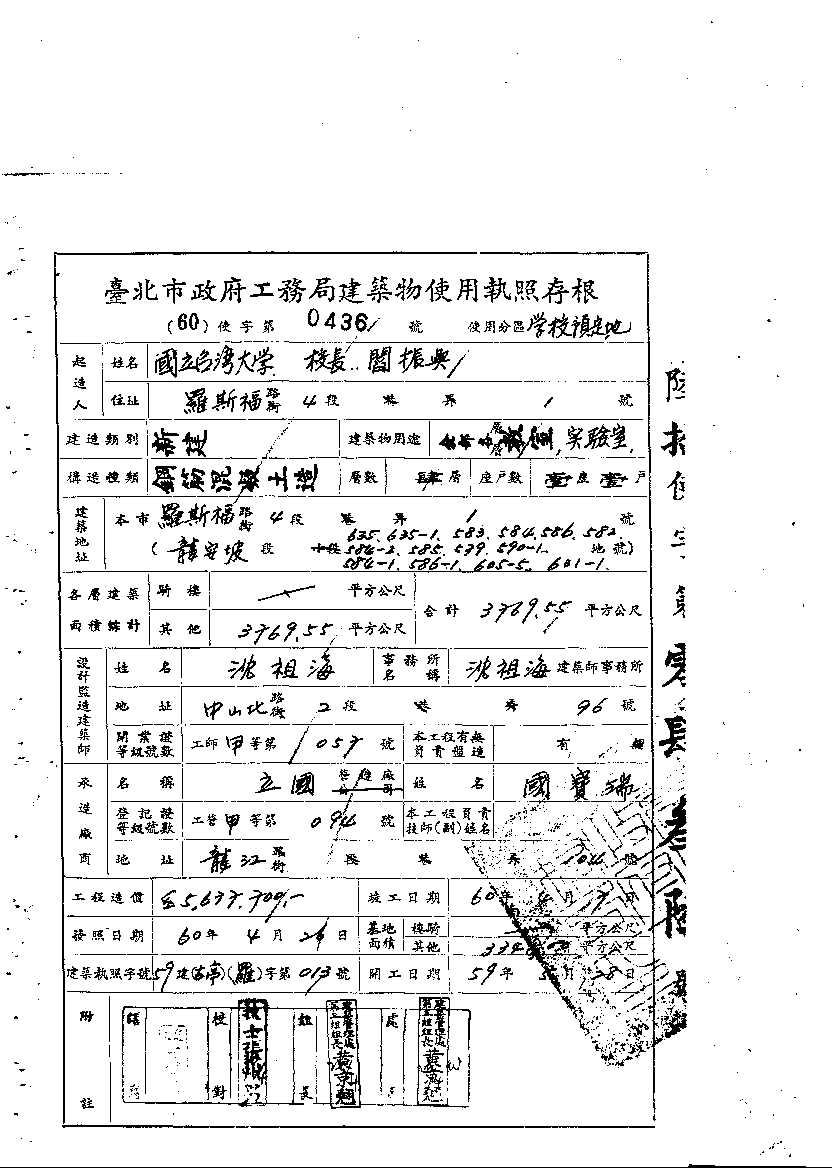 臺北市政府工務局建築物使用執照存根
(60) 使字第 0436 號 使用分區 学校預定地
起造人 姓名 國立台湾大学 校長..閻振興
住址 羅斯福 路街 4 段 巷 弄 1 號
建造類別 新建 建築物用途 教室,实驗室.
構造種類 鋼筋混凝土造 層數 肆層 座戶數 壹座 壹戶
建築地址 本市 羅斯福 路街 4 段 巷 弄 1 號
635. 635-1. 583. 584. 586. 582.
( 龍安坡 段 小段 584-2. 585. 539. 590-1. 地號)
584-1. 586-1. 605-5. 601-1.
各層建築面積總計 騎樓 平方公尺 合計 3769.55 平方公尺
其他 3769.55 平方公尺
設計監造建築師 姓名 沈祖海 事務所名稱 沈祖海 建築師事務所
地址 中山北 路街 2 段 巷 弄 96 號
開業證等級號數 工師 甲 等第 1057 號 本工程有無負責監造 有 無
承造廠商 名稱 立國 營造廠公司 姓名 國寶瑞
登記證等級號數 工營 甲 等第 094 號 本工程負責技師(副)姓名
地址 龍江 路街 段 巷 弄 104 號
工程造價 竣工日期 60 年 4 月 日
發照日期 60 年 4 月 26 日 基地面積 騎樓 平方公尺
其他 平方公尺
建築執照字號 59 建 (羅) 字第 013 號 開工日期 59 年 月 28 日
附註 校對 組長 處長
陸拾使字第零肆叁陸號